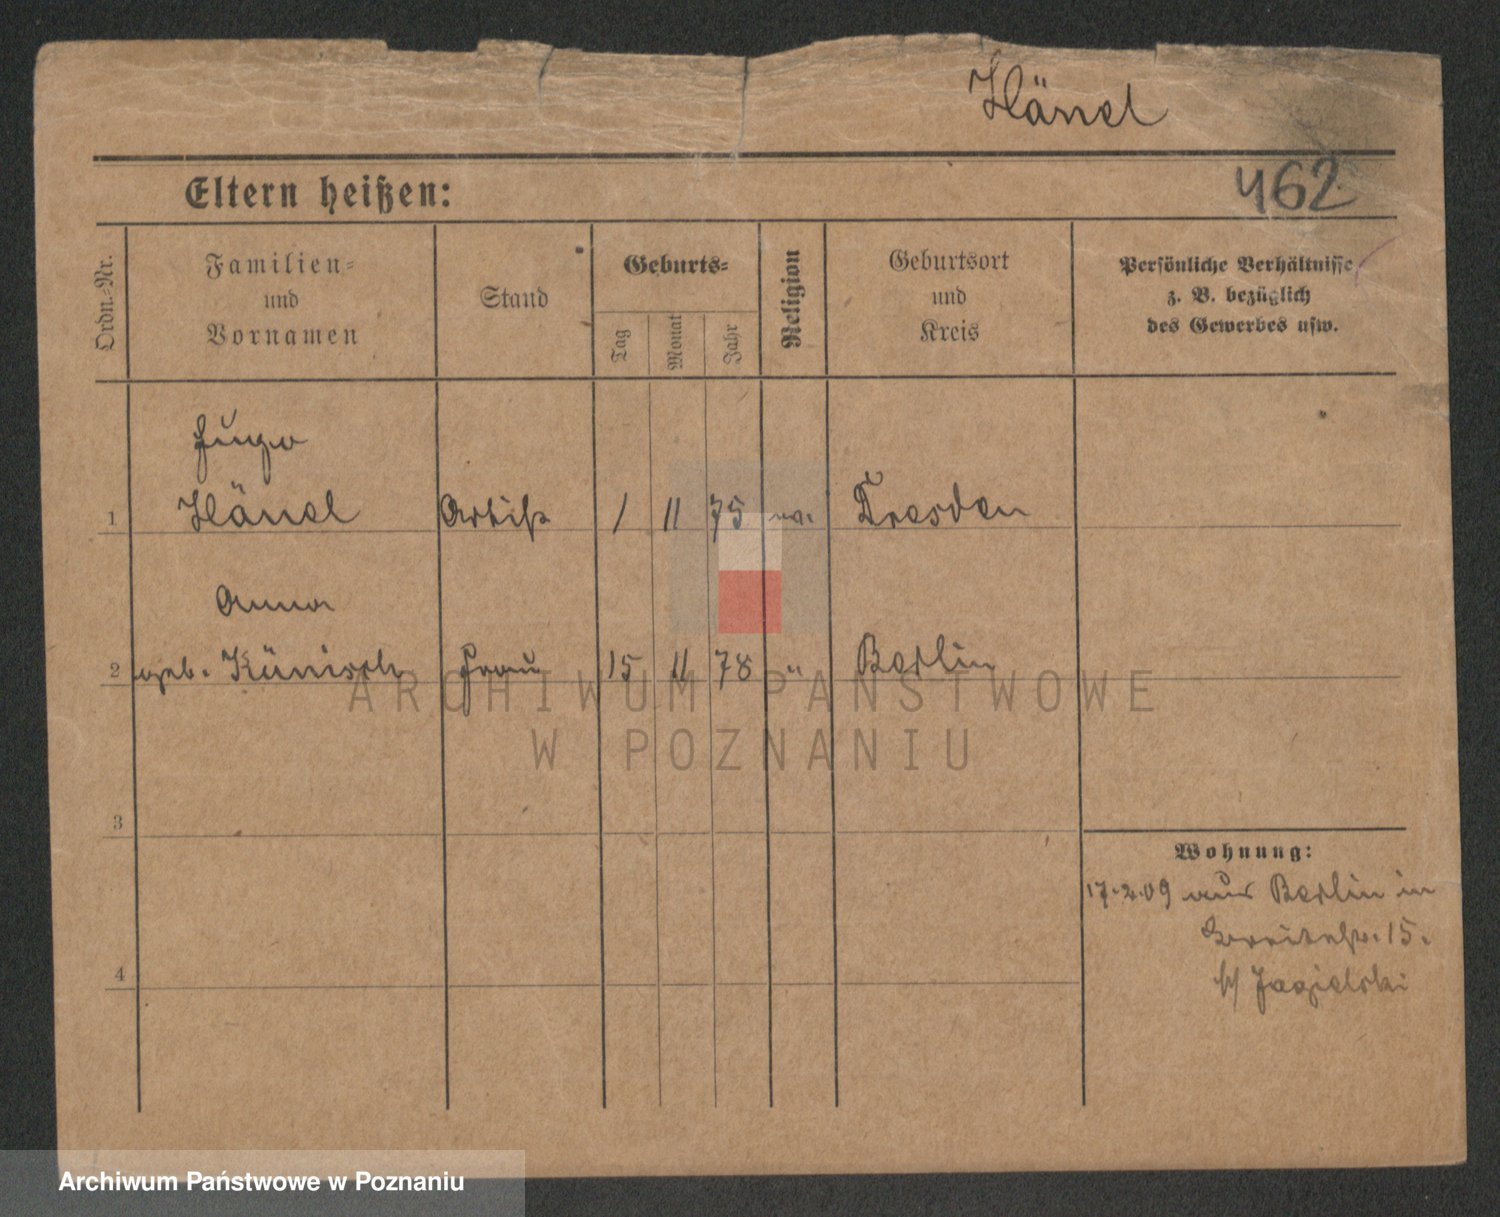 Hänel
462
Eltern heißen:
Ordn.-Nr.
Familien-
und
Vornamen
Stand
Geburts-
Tag
Monat
Jahr
Religion
Geburtsort
und
Kreis
Persönliche Verhältnisse
z. B. bezüglich
des Gewerbes usw.
Hugo
1 Hänel Artist 1 11 75 ev. Dresden
Anna
2 geb. Künisch Frau 15 11 78 " Berlin
ARCHIWUM PAŃSTWOWE
W POZNANIU
3
Wohnung:
17.2.09 aus Berlin in
Breitestr. 15.
b/ Jagielski
4
Archiwum Państwowe w Poznaniu